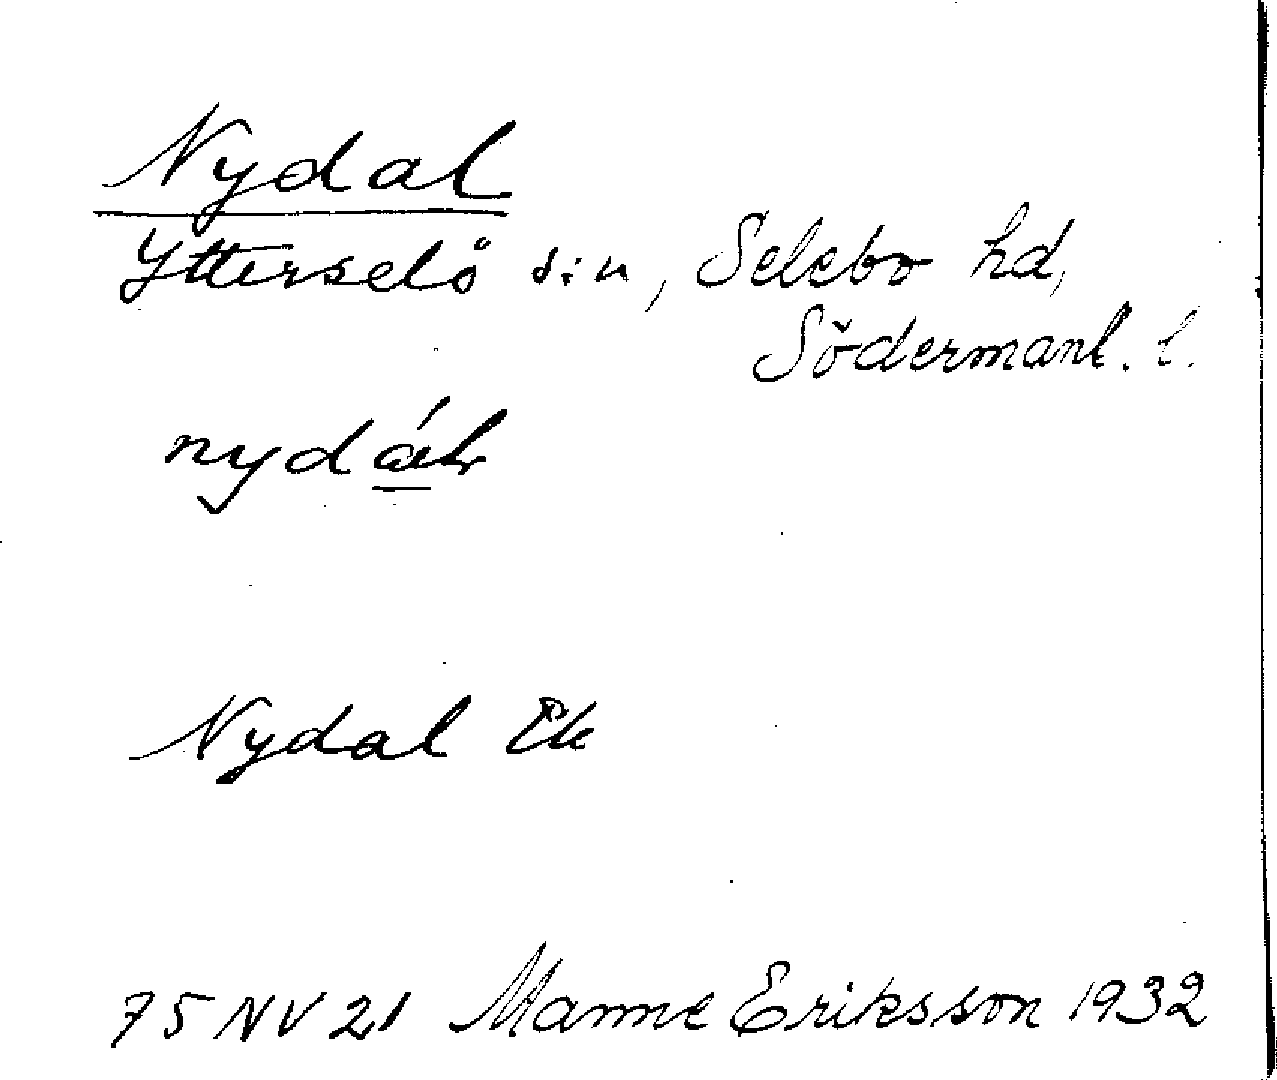 Nydal
Ytterselö s:n, Selebo hd,
Södermanl. l.
Nydal Ek
75 NV 21 Manne Eriksson 1932